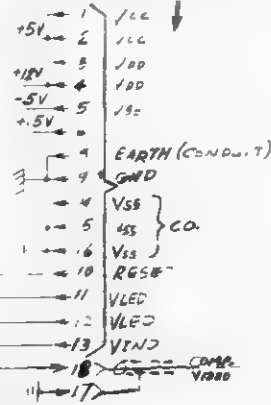 1 VCC
+5V
2 VCC
3 VDD
+12V
4 VDD
-5V
5
+.5V
9 EARTH (CONDUIT)
9 GND
4 VSS
5 VSS } CO.
16 VSS
10 RESET
11 VLED
12 VLED
13 VIND
18 COMP. VIDEO
17